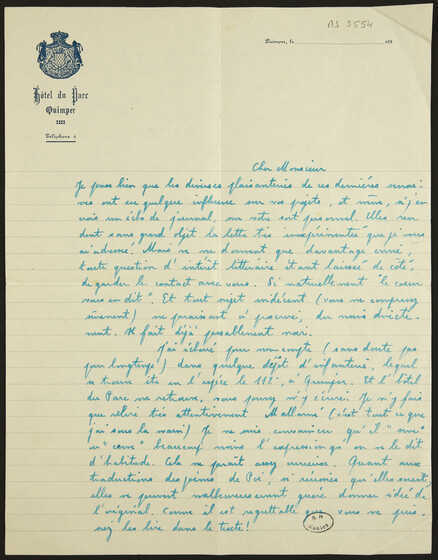 AS 3554
Quimper, le 193
Hôtel du Parc
Quimper
Téléphone 4
Cher Monsieur
Je pense bien que les diverses plaisanteries de ces dernières semai-
nes ont eu quelque influence sur vos projets, et même, si j'en
crois un écho de journal, sur votre sort personnel. Elles ren
dent sans grand objet la lettre très impersonnelle que je vous
ai adressée. Mais ne me donnent que davantage envie,
toute question d'intérêt littéraire étant laissée de côté,
de garder le contact avec vous. Si naturellement "le coeur
vous en dit". Et tout sujet indécent (vous me comprenez
sûrement) ne paraissant à prescrire, du moins directe-
ment. Il fait déjà passablement noir.
J'ai échoué pour mon compte (sans doute pas
pour longtemps) dans quelque dépôt d'infanterie, lequel
se trouve être en l'espèce le 11, à Quimper. Et l'hôtel
du Parc me retrouve, vous pouvez m'y écrire. Je n'y fais
que relire très attentivement Mallarmé (c'est tout ce que
j'ai sous la main). Je me suis convaincu qu'il
beaucoup moins l'expression qu'on ne le dit
d'habitude. Cela me paraît assez curieux. Quant aux
traductions des poèmes de Poe, si réussies qu'elles soient,
elles ne peuvent malheureusement guère donner idée de
l'original. Comme il est regrettable que vous ne puis-
siez les lire dans le texte!
B.M
NANTES